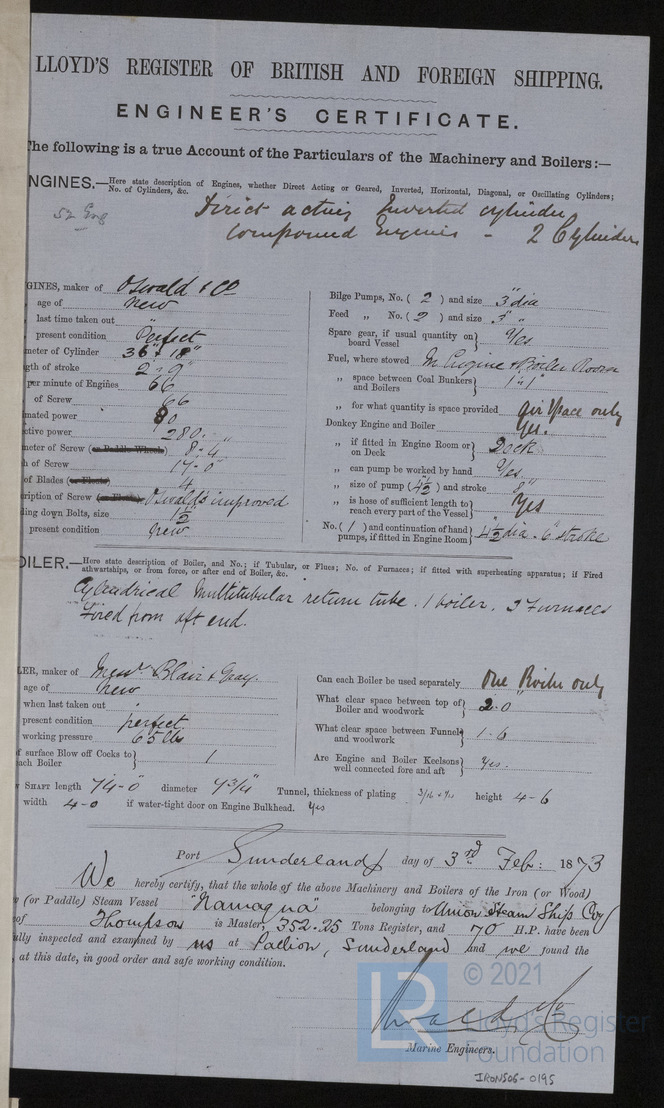 LLOYD'S REGISTER OF BRITISH AND FOREIGN SHIPPING.
ENGINEER'S CERTIFICATE.
The following is a true Account of the Particulars of the Machinery and Boilers:—
NGINES.—Here state description of Engines, whether Direct Acting or Geared, Inverted, Horizontal, Diagonal, or Oscillating Cylinders;
No. of Cylinders, &c.
52 Eng
Direct acting Inverted cylinder
Compound Engines - 2 Cylinders
GINES, maker of Oswald & Co
age of new
last time taken out "
present condition Perfect
meter of Cylinder 36" & 18"
gth of stroke 2-9"
per minute of Engines 66
of Screw 66
mated power 80
ctive power 280. "
meter of Screw (or Paddle Wheel) 8-4
h of Screw 17-0
of Blades (or Floats) 4
ription of Screw (or Floats) Oswald's improved
ding down Bolts, size 1½
present condition new
Bilge Pumps, No. ( 2 ) and size 3" dia
Feed „ No. ( 2 ) and size 3" "
Spare gear, if usual quantity on board Vessel} Yes
Fuel, where stowed In Engine & Boiler Room
„ space between Coal Bunkers and Boilers} 1"1"
„ for what quantity is space provided air space only
Donkey Engine and Boiler Yes.
„ if fitted in Engine Room or on Deck} Deck
„ can pump be worked by hand Yes
„ size of pump ( 4½ ) and stroke 8"
„ is hose of sufficient length to reach every part of the Vessel} Yes
No. ( 1 ) and continuation of hand pumps, if fitted in Engine Room} 4½ dia. 6" stroke
OILER.—Here state description of Boiler, and No.; if Tubular, or Flues; No. of Furnaces; if fitted with superheating apparatus; if Fired
athwartships, or from force, or after end of Boiler, &c.
Cylindrical Multitubular return tube. 1 boiler. 3 Furnaces
Fired from aft end.
LER, maker of Messrs Blair & Gray.
age of new
when last taken out "
present condition perfect
working pressure 65 lbs
f surface Blow off Cocks to each Boiler} 1
Can each Boiler be used separately One Boiler only
What clear space between top of Boiler and woodwork} 2-0"
What clear space between Funnel and woodwork} 1-6
Are Engine and Boiler Keelsons well connected fore and aft} Yes.
w SHAFT length 74-0" diameter 7¾" Tunnel, thickness of plating 3/16 & 4/16 height 4-6
width 4-0 if water-tight door on Engine Bulkhead. Yes
Port Sunderland day of 3rd Feb: 1873
We hereby certify, that the whole of the above Machinery and Boilers of the Iron (or Wood)
w (or Paddle) Steam Vessel "Namaqua" belonging to Union Steam Ship Coy
of Thompson is Master, 352.25 Tons Register, and 70 H.P. have been
ully inspected and examined by us at Pallion, Sunderland and we found the
at this date, in good order and safe working condition.
Oswald & Co
Marine Engineers.
LR
© 2021
Lloyd's Register
Foundation
IRON506-0195